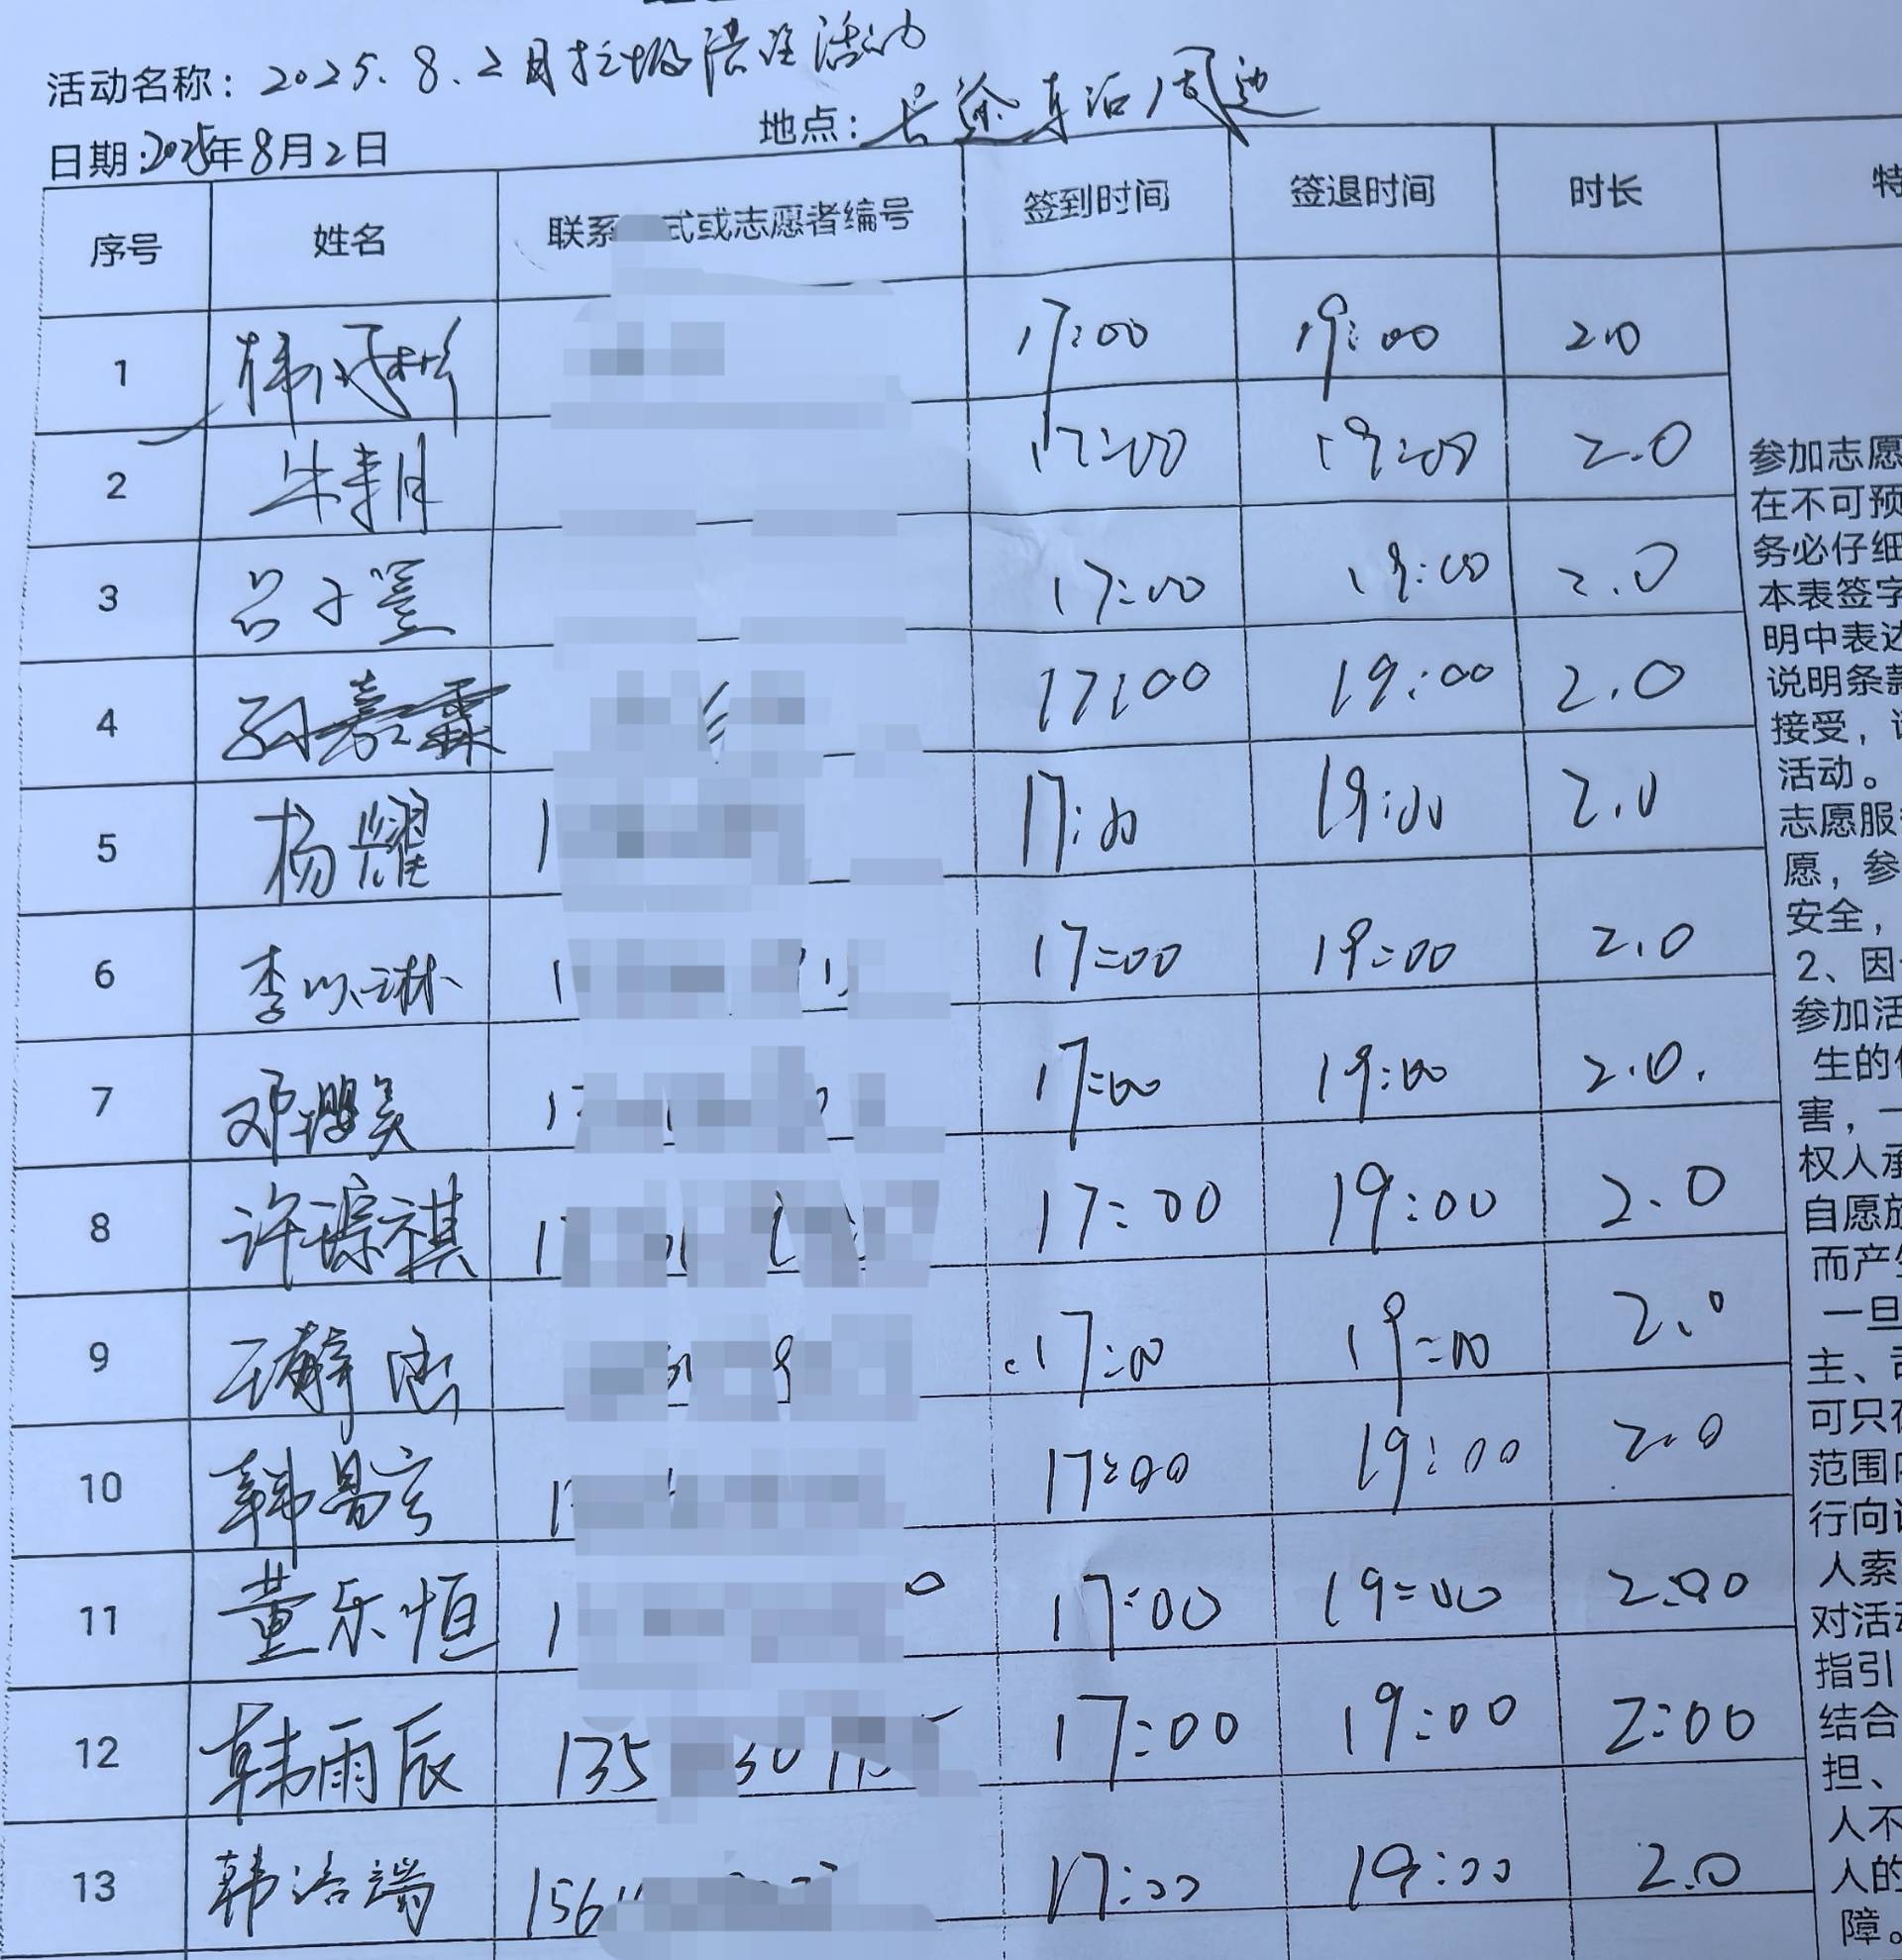 活动名称：2025.8.2日垃圾清理活动
日期：2025年8月2日 地点：长途车站周边
序号 姓名 联系 式或志愿者编号 签到时间 签退时间 时长 特
1 韩 17:00 19:00 2.0
2 17:00 19:00 2.0
3 吕子萱 17:00 19:00 2.0
4 孙嘉霖 17:00 19:00 2.0
5 杨耀 1 17:00 19:00 2.0
6 李以琳 1 17:00 19:00 2.0
7 邓璟美 17:00 19:00 2.0.
8 许琮祺 1 17:00 19:00 2.0
9 王 涵 9 17:00 19:00 2.0
10 韩昌言 1 17:00 19:00 2.0
11 董乐恒 1 0 17:00 19:00 2:00
12 韩雨辰 135 30 17:00 19:00 2:00
13 韩洛端 156 17:00 19:00 2.0
参加志愿
在不可预
务必仔细
本表签字
明中表达
说明条款
接受，
活动。
志愿服
愿，参
安全，
2、因
参加活
生的
害，一
权人承
自愿放
而产生
一旦
主、
可只在
范围内
行向
人索
对活动
指引
结合
担、
人不
人的
障。